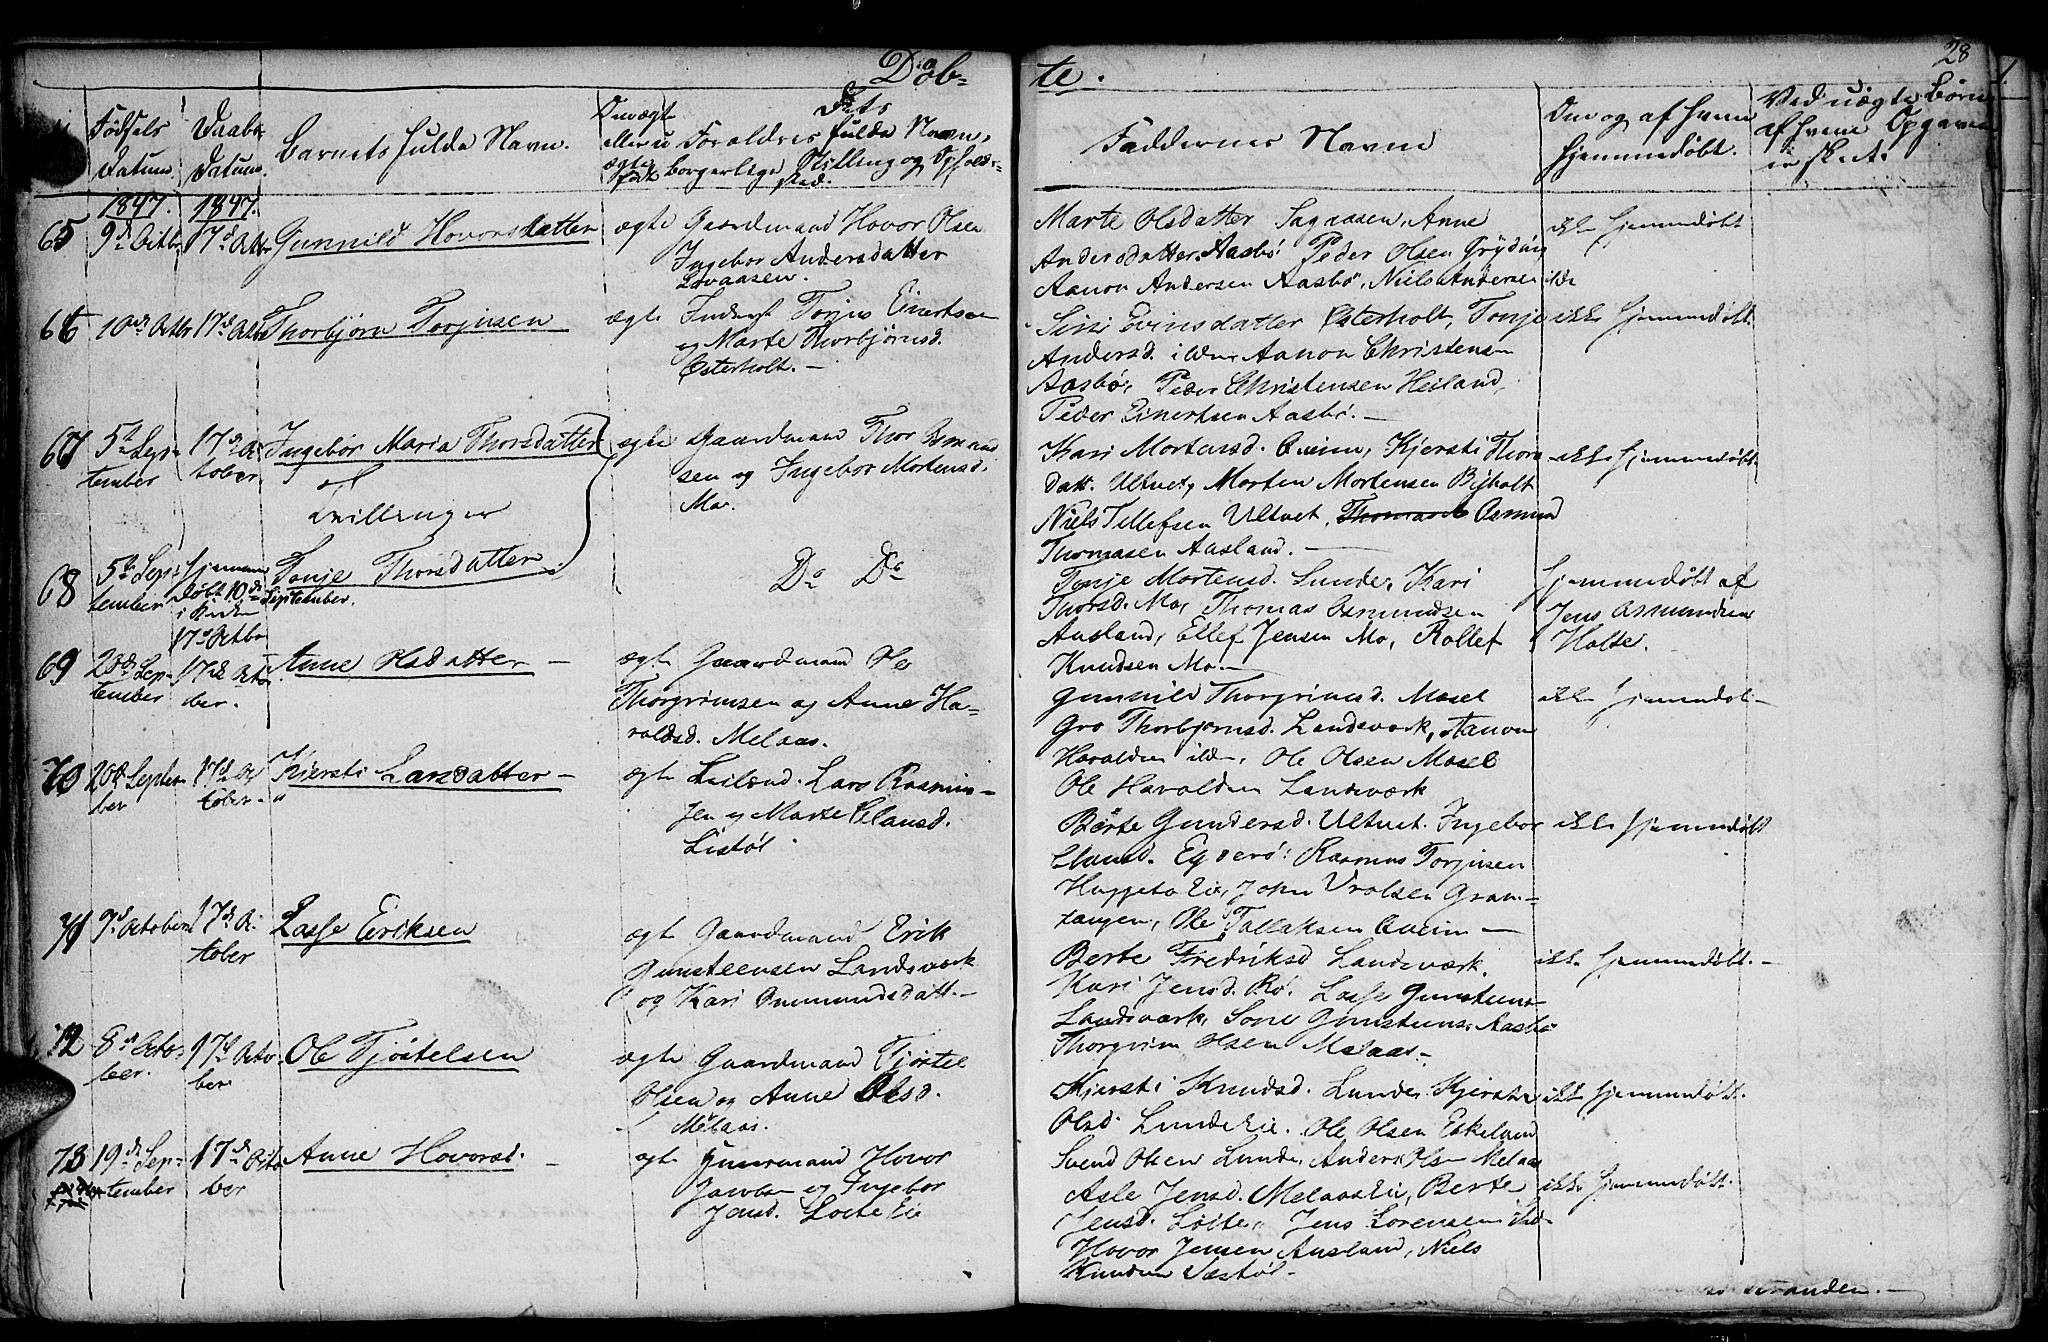 Döb-
te.
28
Fødsels Datum.
Daabs Datum.
Barnets fulde Navn.
Om ægte eller u ægte født
Forældres fulde Navn, borgerlige Stilling og Opholds-sted.
Faddernes Navne
Om og af hvem hjemmedøbt.
Ved uægte Børn af hvem Opgaven er skeet.
1847. 1847.
65 9d Octbr 17d Octbr Gunnild Hovorsdatter
ægte Gaardmand Hovor Olsen
Ingebor Andersdatter
Marte Olsdatter Anne
Andersdatter Aasbø Peder Olsen
Aanon Andersen Aasbø, Niels Andersen ilde
ikke hjemmedøbt
66 10de Octbr 17d Octbr Thorbjørn Torjusen
ægte Inderst Torjus Einertsen
og Marte Thorbjørnsd.
Østerholt. —
Siri Evinsdatter Østerholt, Tonje
Andersd. ilde Aanon Christensen
Aasbø, Peder Christensen Heiland,
Peder Einertsen Aasbø. —
ikke hjemmedøbt.
67 5te September 17de October Ingebor Maria Thorsdatter
Tvillinger
ægte Gaardmand Thor Osmund
sen og Ingebor Mortensd.
Mo.
Kari Mortensd. Qveim, Kjersti Thors
datt. Ultvet, Morten Mortensen Bijholt
Niels Tellefsen Ultvet, Osmund
Thomasen Aasland. —
ikke hjemmedøbt
68 5te September hjemme døbt 10de September i Kirken 17d Octbr
Tonje Thorsdatter
Do Do
Tonje Mortensd. Lunde, Kari
Thorsd. Mo, Thomas Osmundsen
Aasland, Ellef Jensen Mo, Rollef
Knudsen Mo. —
hjemmedøbt af
Jens Osmundsen
Holte.
69 20de September 17de October Anne Olsdatter —
ægte Gaardmand Ole
Thorgrimsen og Anne Ha-
roldsd. Melaas.
Gunnild Thorgrimsd. Mosel
Gro Thorbjørnsd. Landsverk, Aanon
Haroldsen ilde, Ole Olsen Mosel
Ole Haroldsen Landsværk
ikke hjemmedøbt —
70 20d September 17de October Kjersti Larsdatter —
ægte Leilænd. Lars Rasmus-
sen og Marte Clausd.
Listøl.
Børte Gundersd. Ultvet. Ingebor
Clausd. Egderø: Rasmus Torjusen
Huggeto Eie, John Vrolsen Gram-
tangen, Ole Tallaksen Qveim —
ikke hjemmedøbt
71 9d October 17de October Lasse Eriksen
ægte Gaardmand Erik
Gunsteensen Landsværk
og Kari Ommundsdatt. —
Berte Fredriksd Landsværk.
Kari Jensd. Rø. Lasse Gunsteens-
Landsværk, Sone Gunsteens. Aasbø
Thorgrim Olsen Melaas. —
ikke hjemmedøbt. —
72 8d October. 17d October Ole Tjøstelsen
ægte Gaardmand Tjøstel
Olsen og Anne Olsd.
Melaas.
Kjersti Knudsd. Lunde, Kjersti
Olsd. Lunde Eie. Ole Olsen Eskeland
Svend Olsen Lunde, Anders Olsen Melaas
ikke hjemmedøbt.
73 19de September 17de October Anne Hovorsd. —
ægte Huusmand Hovor
Jacobsen og Ingebor
Jensd. Løite Eie
Asle Jensd. Melaas Eie, Berte
Jensd. Løite, Jens Lorensen
Hovor Jensen Aasland, Niels
Knudsen Væstøl —
ikke hjemmedøbt.